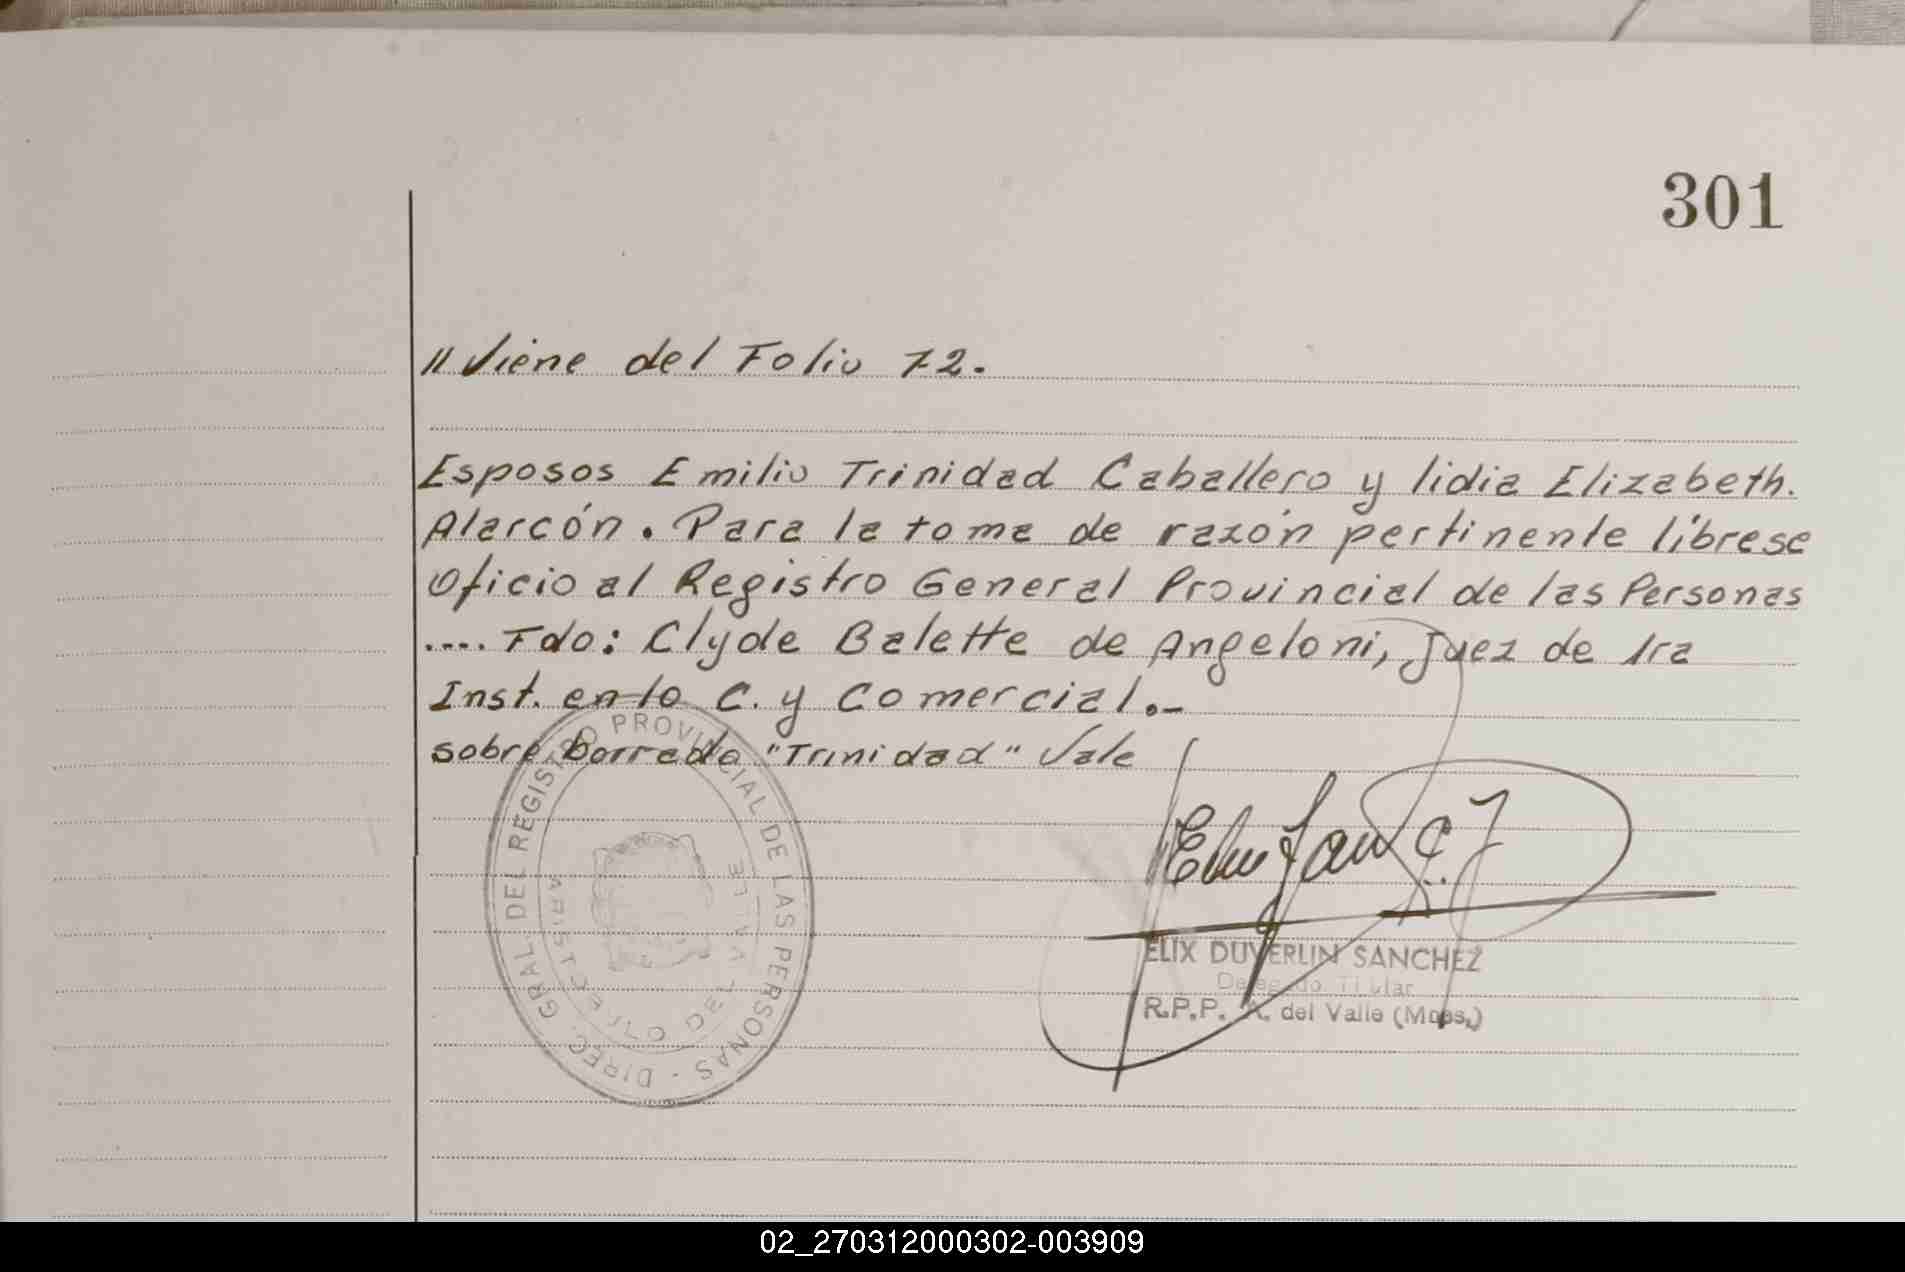 301
// Viene del Folio 72.
Esposos Emilio Trinidad Caballero y lidia Elizabeth.
Alarcón. Para la toma de razón pertinente líbrese
Oficio al Registro General Provincial de las Personas
.... Fdo: Clyde Balette de Angeloni, Juez de 1ra
Inst. en lo C. y Comercial.-
sobre borrado "Trinidad" Vale
DIREC. GRAL. DEL REGISTRO PROVINCIAL DE LAS PERSONAS -
ARISTOBULO DEL VALLE
ELIX DUVERLIN SANCHEZ
Delegado Titular
R.P.P. A. del Valle (Mnes.)
02_270312000302-003909